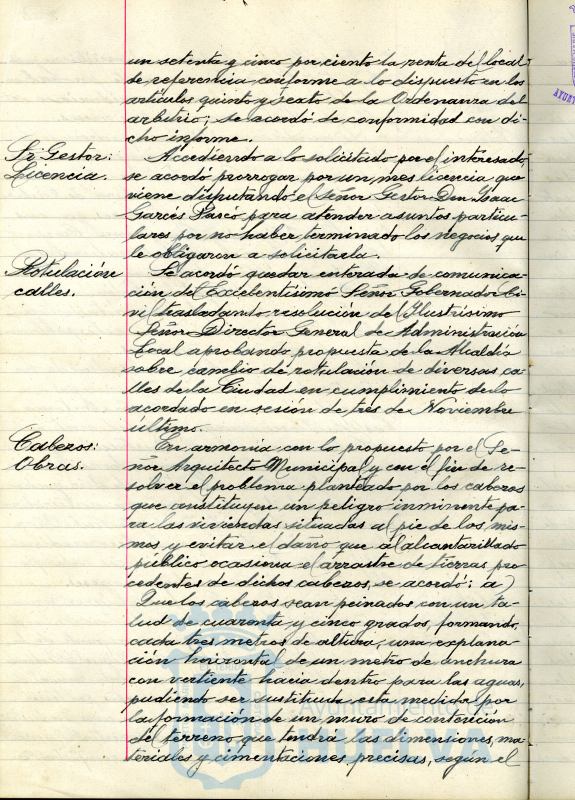 un setenta y cinco por ciento la renta del local
de referencia conforme a lo dispuesto en los
artículos quinto y sexto de la Ordenanza del
arbitrio; se acordó de conformidad con di-
cho informe.
Sr. Gestor:
Licencia.
Accediendo a lo solicitado por el interesado,
se acordó prorrogar por un mes licencia que
viene disfrutando el Señor Gestor Don Isaac
Garcés Pasco para atender asuntos particu-
lares por no haber terminado los negocios que
le obligaron a solicitarla.
Rotulación
calles.
Se acordó quedar enterada de comunica-
ción del Excelentísimo Señor Gobernador Ci-
vil trasladando resolución del Ilustrísimo
Señor Director General de Administración
Local aprobando propuesta de la Alcaldía
sobre cambio de rotulación de diversas ca-
lles de la Ciudad en cumplimiento de lo
acordado en sesión de tres de Noviembre
último.
Cabezos:
Obras.
En armonía con lo propuesto por el Se-
ñor Arquitecto Municipal y con el fin de re-
solver el problema planteado por los cabezos
que constituyen un peligro inminente pa-
ra las viviendas situadas al pie de los mis-
mos y evitar el daño que al alcantarillado
público ocasiona el arrastre de tierras pro-
cedentes de dichos cabezos, se acordó: a)
Que los cabezos sean peinados con un ta-
lud de cuarenta y cinco grados, formando,
cada tres metros de altura, una explana-
ción horizontal de un metro de anchura
con vertiente hacia dentro para las aguas,
pudiendo ser sustituída esta medida por
la formación de un muro de contención
del terreno que tendrá las dimensiones, ma-
teriales y cimentaciones precisas, según el
Ayuntamiento de
HUELVA